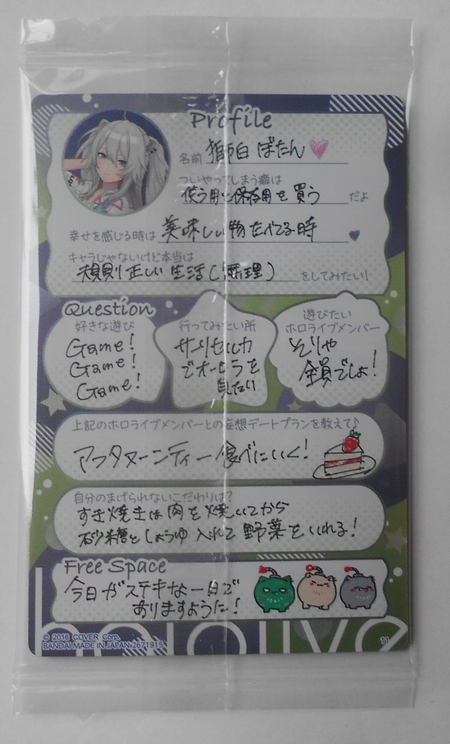 Profile
名前 獅白 ぼたん
ついやってしまう癖は
使う用と保存用を買う だよ
幸せを感じる時は 美味しい物たべてる時
キャラじゃないけど本当は
規則正しい生活(無理) をしてみたい!
Question
好きな遊び
Game!
Game!
Game!
行ってみたい所
サンリセルカ
でオーロラを
見たい
遊びたい
ホロライブメンバー
そりゃ
全員でしょ!
上記のホロライブメンバーとの妄想デートプランを教えて♪
アフタヌーンティー食べにいく!
自分のまげられないこだわりは?
すき焼きは肉を焼いてから
砂糖としょうゆ入れて野菜をいれる!
Free Space
今日がステキな一日で
ありますように!
hololive
© 2016 COVER Corp.
BANDAI MADE IN JAPAN 2671915